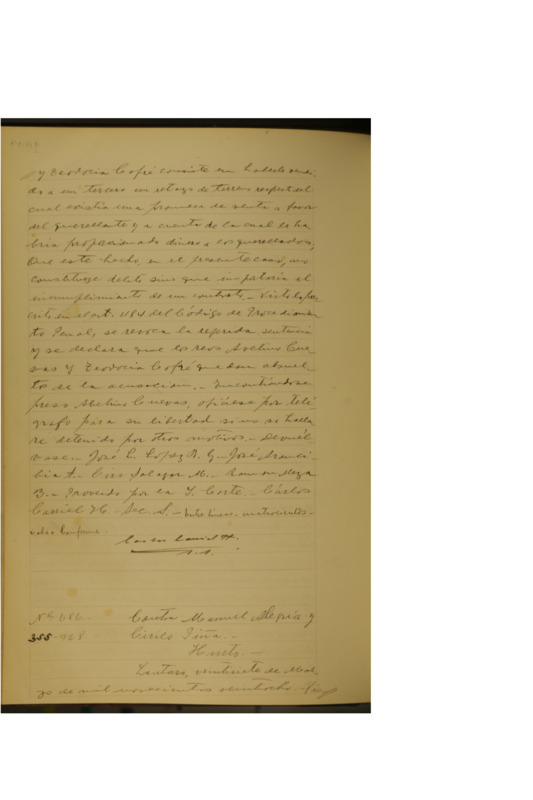 y Teodocia Cofré consiste en haberle vendi-
do a un tercero un retazo de terreno respecto del
cual existia una promesa de venta a favor
del querellante y a cuenta de la cual es ha-
bria proporcionado dinero a los querellados,
Que este hecho, en el presente caso, no
constituye delito sino que importaria el
incumplimiento de un contrato. - Visto lo pres-
crito en el art. del Código de Procedimien-
to Penal, se revoca la referida sentencia
y se declara que los reos Avelino Cue-
vas y Teodocia Cofré quedan absuel-
tos de la acusacion. - Encontrándose
preso Avelino Cuevas, ofíciese por telé-
grafo para su libertad si no se halla-
re detenido por otros motivos. - Devuél-
vase. - José L. López R. G. - José
A. - Ciro Salazar M. - Ramon Meza
B. - Proveido por la I. Corte. - Cárlos
H. - Sec. S. - Entre lineas -
vale. Conforme.
Carlos H.
S. S.
Nº 686.-
355-928
Contra Manuel y
Cirilo Piña. -
Hurto. -
veintisiete de Mar-
zo de mil novecientos veintiocho.